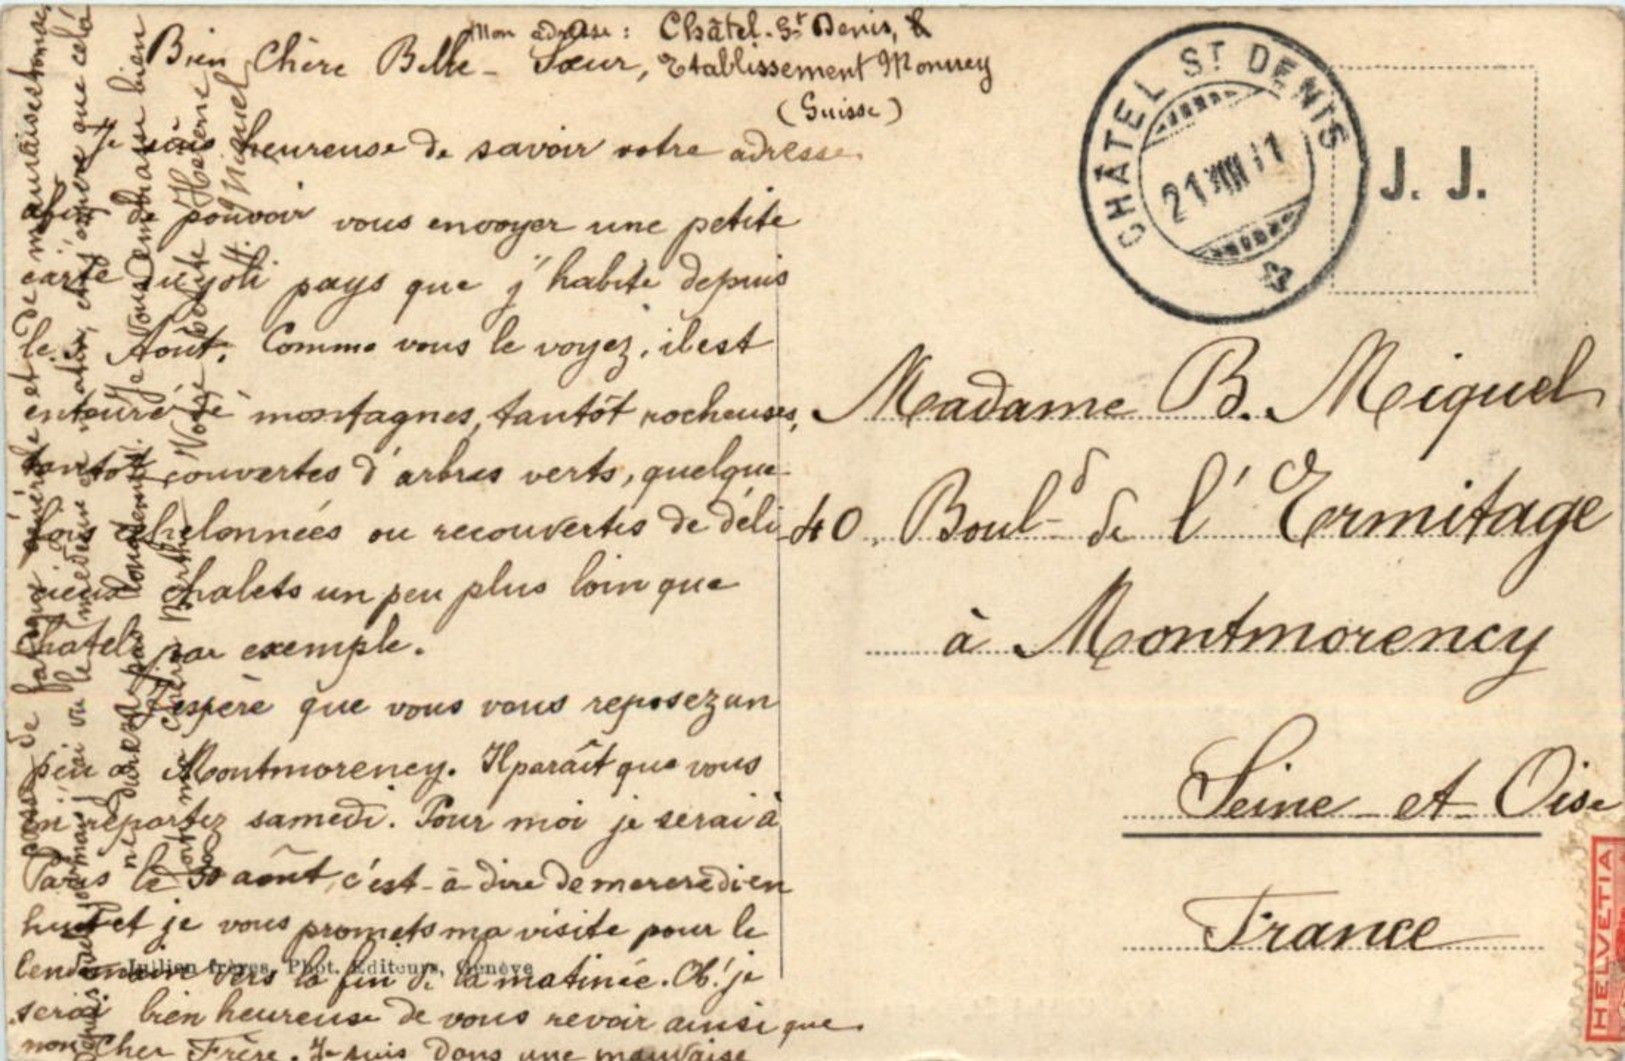 Mon adresse : Châtel-St Denis,
Etablissement Monney
(Suisse)
Bien Chère Belle-Sœur,
Je suis heureuse de savoir votre adresse,
afin de pouvoir vous envoyer une petite
carte du joli pays que j'habite depuis
le Août. Comme vous le voyez, il est
entouré de montagnes, tantôt rocheuses,
tantôt couvertes d'arbres verts, quelque-
fois échelonnées ou recouvertes de déli-
cieux chalets un peu plus loin que
Châtel par exemple.
J'espère que vous vous reposez un
peu à Montmorency. Il paraît que vous
en repartez samedi. Pour moi je serai à
Paris le 30 août, c'est-à-dire de mercredi en
huit et je vous promets ma visite pour le
lendemain vers la fin de la matinée. Oh! je
serai bien heureuse de vous revoir ainsi que
mon Cher Frère. Je suis dans une mauvaise
passe de fatigue générale et de mauvais estomac
depuis j'ai vu le médecin ce matin, et j'espère que cela
ne durera pas longtemps. Je vous embrasse bien
ma chérie Berthe. Votre petite Hélène
Miquel
CHÂTEL ST DENIS
21 VIII 11
J. J.
Madame B. Miquel
40, Bould de l'Ermitage
à Montmorency
Seine-et-Oise
France
HELVETIA
Jullien frères, Phot. Editeurs, Genève